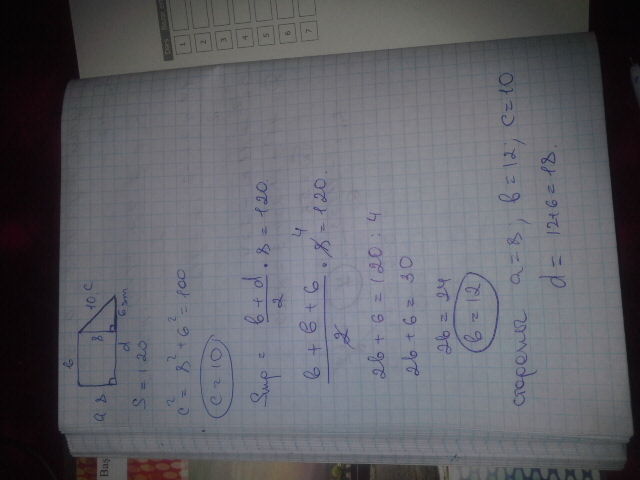 b
a 8 8 10 c
d 6 cm
S = 120
c² = 8² + 6² = 100
c = 10
Sтр = b+d/2 · 8 = 120
b+b+6/2 · 8 = 120
4
2b + 6 = 120 : 4
2b + 6 = 30
2b = 24
b = 12
стороны a = 8, b = 12, c = 10
d = 12+6 = 18.
1
2
3
4
5
6
7
Baş